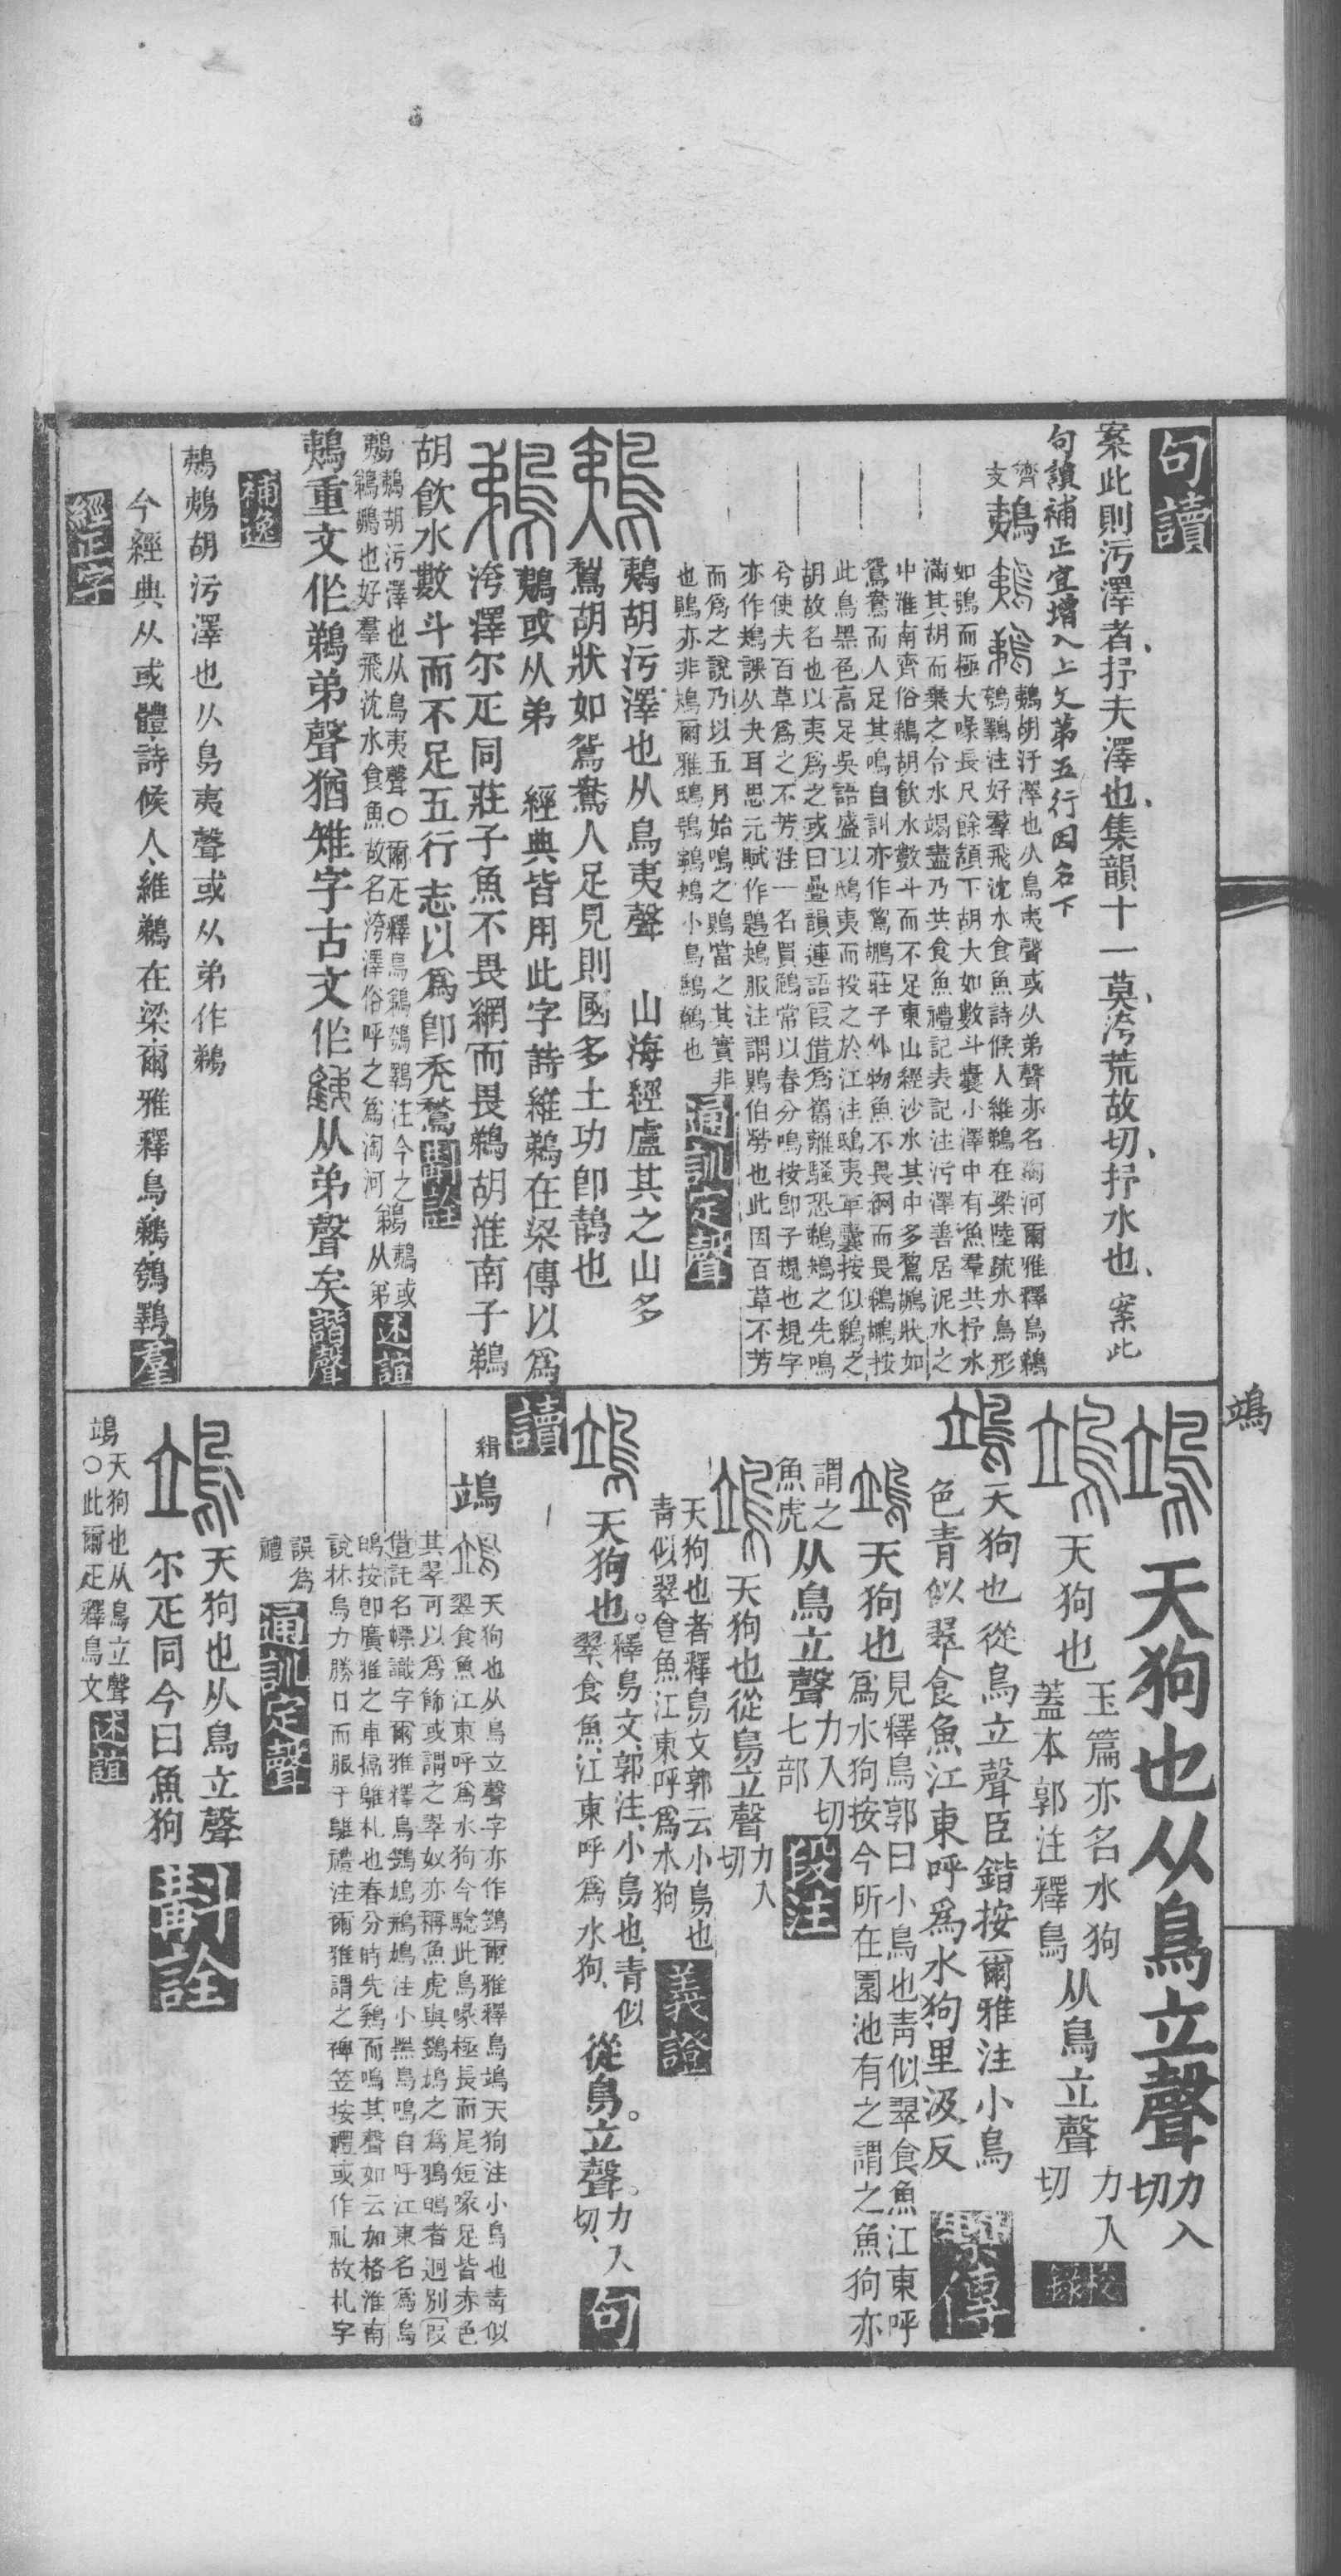 句讀
案此則污澤者抒夫澤也集韻十一莫洿荒故切抒水也案此
句讀補正宜增入上文第五行因名下
齊
支
鶇
鵜胡汙澤也从鳥夷聲或从弟聲亦名淘河爾雅釋鳥鵜
鴮鸅注好羣飛沈水食魚詩候人維鵜在梁陸疏水鳥形
如鶚而極大喙長尺餘頷下胡大如數斗囊小澤中有魚羣共抒水
滿其胡而棄之令水竭盡乃共食魚禮記表記注污澤善居泥水之
中淮南齊俗鵜胡飲水數斗而不足東山經沙水其中多鵹鶘狀如
鴛鴦而人足其鳴自訓亦作鵹鶘莊子外物魚不畏網而畏鵜鶘按
此鳥黑色高足吳語盛以鴟夷而投之於江注鴟夷革囊按似鵜之
胡故名也以夷爲之或曰疊韻連語叚借爲嶲離騷恐鵜鴂之先鳴
兮使夫百草爲之不芳注一名買鵤常以春分鳴按卽子規也規字
亦作鴂誤从夬耳思元賦作鶗鴂服注謂鶪伯勞也此因百草不芳
而爲之說乃以五月始鳴之鶪當之其實非
也鶪亦非鴂爾雅鴟鴞鸋鴂小鳥鷦鷯也
通訓定聲
鶇胡污澤也从鳥夷聲 山海經盧其之山多
鵹胡狀如鴛鴦人足見則國多土功卽鵲也
鶇或从弟 經典皆用此字詩維鵜在梁傳以爲
洿澤尔疋同莊子魚不畏網而畏鵜胡淮南子鵜
胡飲水數斗而不足五行志以爲卽禿鶖
斠詮
鶇胡污澤也从鳥夷聲〇爾疋釋鳥鵜鴮鸅注今之鵜
鶘也好羣飛沈水食魚故名洿澤俗呼之爲淘河
鵜
鶇或
从弟
述誼
鶇重文作鵜弟聲猶雉字古文作䠶从弟聲矣
諧聲
補逸
鶇鶇胡污澤也从鳥夷聲或从弟作鵜
今經典从或體詩候人維鵜在梁爾雅釋鳥鵜鴮鸅
羣
經正字
鴗
天狗也从鳥立聲
力入
切
天狗也
玉篇亦名水狗
蓋本郭注釋鳥
从鳥立聲
力入
切
校錄
天狗也從鳥立聲臣鍇按爾雅注小鳥
色青似翠食魚江東呼爲水狗里汲反
繫傳
天狗也
見釋鳥郭曰小鳥也靑似翠食魚江東呼
爲水狗按今所在園池有之謂之魚狗亦
謂之
魚虎
从鳥立聲
力入切
七部
段注
天狗也從鳥立聲
力入
切
天狗也者釋鳥文郭云小鳥也
青似翠食魚江東呼爲水狗
義證
天狗也
釋鳥文郭注小鳥也青似
翠食魚江東呼爲水狗
從鳥立聲
力入
切
句
讀
緝
鴗
天狗也从鳥立聲字亦作鷑爾雅釋鳥鴗天狗注小鳥也靑似
翠食魚江東呼爲水狗今驗此鳥喙極長而尾短喙足皆赤色
其翠可以爲飾或謂之翠奴亦稱魚虎與鷑鴗之爲鴉鴖者迥別叚
借託名幖識字爾雅釋鳥鷑鴗鵧鴗注小黑鳥鳴自呼江東名爲烏
鴖按卽廣雅之車搹鵻札也春分時先鷄而鳴其聲如云加格淮南
說林烏力勝日而服于鵻禮注爾雅謂之裨笠按禮或作札故札字
誤爲
禮
通訓定聲
天狗也从鳥立聲
尔疋同今曰魚狗
斠詮
鴗
天狗也从鳥立聲
〇此爾疋釋鳥文
述誼
鴗